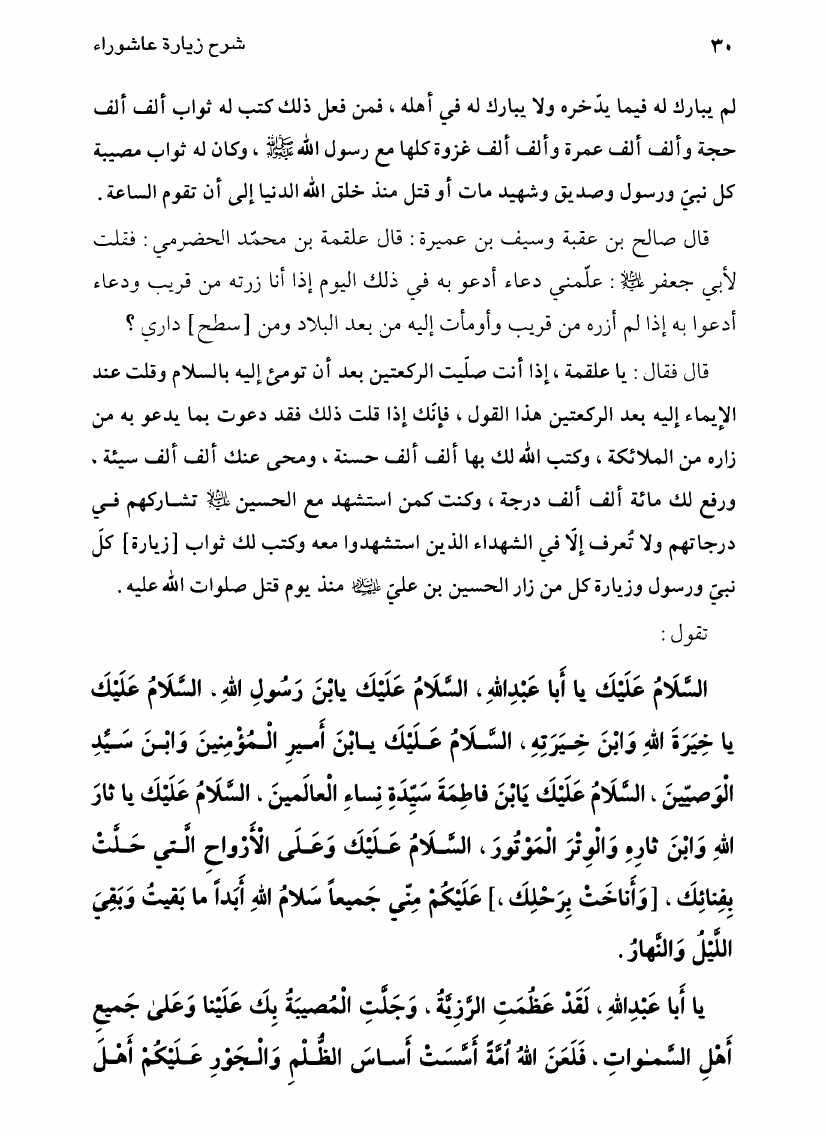 ٣٠ شرح زيارة عاشوراء
لم يبارك له فيما يدّخره ولا يبارك له في أهله ، فمن فعل ذلك كتب له ثواب ألف ألف
حجة وألف ألف عمرة وألف ألف غزوة كلها مع رسول الله ﷺ ، وكان له ثواب مصيبة
كل نبيّ ورسول وصديق وشهيد مات أو قتل منذ خلق الله الدنيا إلى أن تقوم الساعة .
قال صالح بن عقبة وسيف بن عميرة : قال علقمة بن محمّد الحضرمي : فقلت
لأبي جعفر عليه السلام : علّمني دعاء أدعو به في ذلك اليوم إذا أنا زرته من قريب ودعاء
أدعوا به إذا لم أزره من قريب وأومأت إليه من بعد البلاد ومن [سطح] داري ؟
قال فقال : يا علقمة ، إذا أنت صلّيت الركعتين بعد أن تومئ إليه بالسلام وقلت عند
الإيماء إليه بعد الركعتين هذا القول ، فإنّك إذا قلت ذلك فقد دعوت بما يدعو به من
زاره من الملائكة ، وكتب الله لك بها ألف ألف حسنة ، ومحى عنك ألف ألف سيئة ،
ورفع لك مائة ألف ألف درجة ، وكنت كمن استشهد مع الحسين عليه السلام تشاركهم في
درجاتهم ولا تُعرف إلّا في الشهداء الذين استشهدوا معه وكتب لك ثواب [زيارة] كلّ
نبيّ ورسول وزيارة كل من زار الحسين بن عليّ عليهما السلام منذ يوم قتل صلوات الله عليه .
تقول :
السَّلَامُ عَلَيْكَ يا أَبا عَبْدِاللهِ ، السَّلَامُ عَلَيْكَ يابْنَ رَسُولِ اللهِ ، السَّلَامُ عَلَيْكَ
يا خِيَرَةَ اللهِ وَابْنَ خِيَرَتِهِ ، السَّلَامُ عَلَيْكَ يابْنَ أَميرِ الْمُؤْمِنينَ وَابْنَ سَيِّدِ
الْوَصيّينَ ، السَّلَامُ عَلَيْكَ يَابْنَ فاطِمَةَ سَيِّدَةِ نِساءِ الْعالَمينَ ، السَّلَامُ عَلَيْكَ يا ثارَ
اللهِ وَابْنَ ثارِهِ وَالْوِتْرَ الْمَوْتُورَ ، السَّلَامُ عَلَيْكَ وَعَلَى الْأَرْواحِ الَّتي حَلَّتْ
بِفِنائِكَ ، [وَأَناخَتْ بِرَحْلِكَ ،] عَلَيْكُمْ مِنّي جَميعاً سَلامُ اللهِ أَبَداً ما بَقيتُ وَبَقِيَ
اللَّيْلُ وَالنَّهارُ .
يا أَبا عَبْدِاللهِ ، لَقَدْ عَظُمَتِ الرَّزِيَّةُ ، وَجَلَّتِ الْمُصيبَةُ بِكَ عَلَيْنا وَعَلىٰ جَميعِ
أَهْلِ السَّمٰواتِ ، فَلَعَنَ اللهُ اُمَّةً أَسَّسَتْ أَساسَ الظُّلْمِ وَالْجَوْرِ عَلَيْكُمْ أَهْلَ